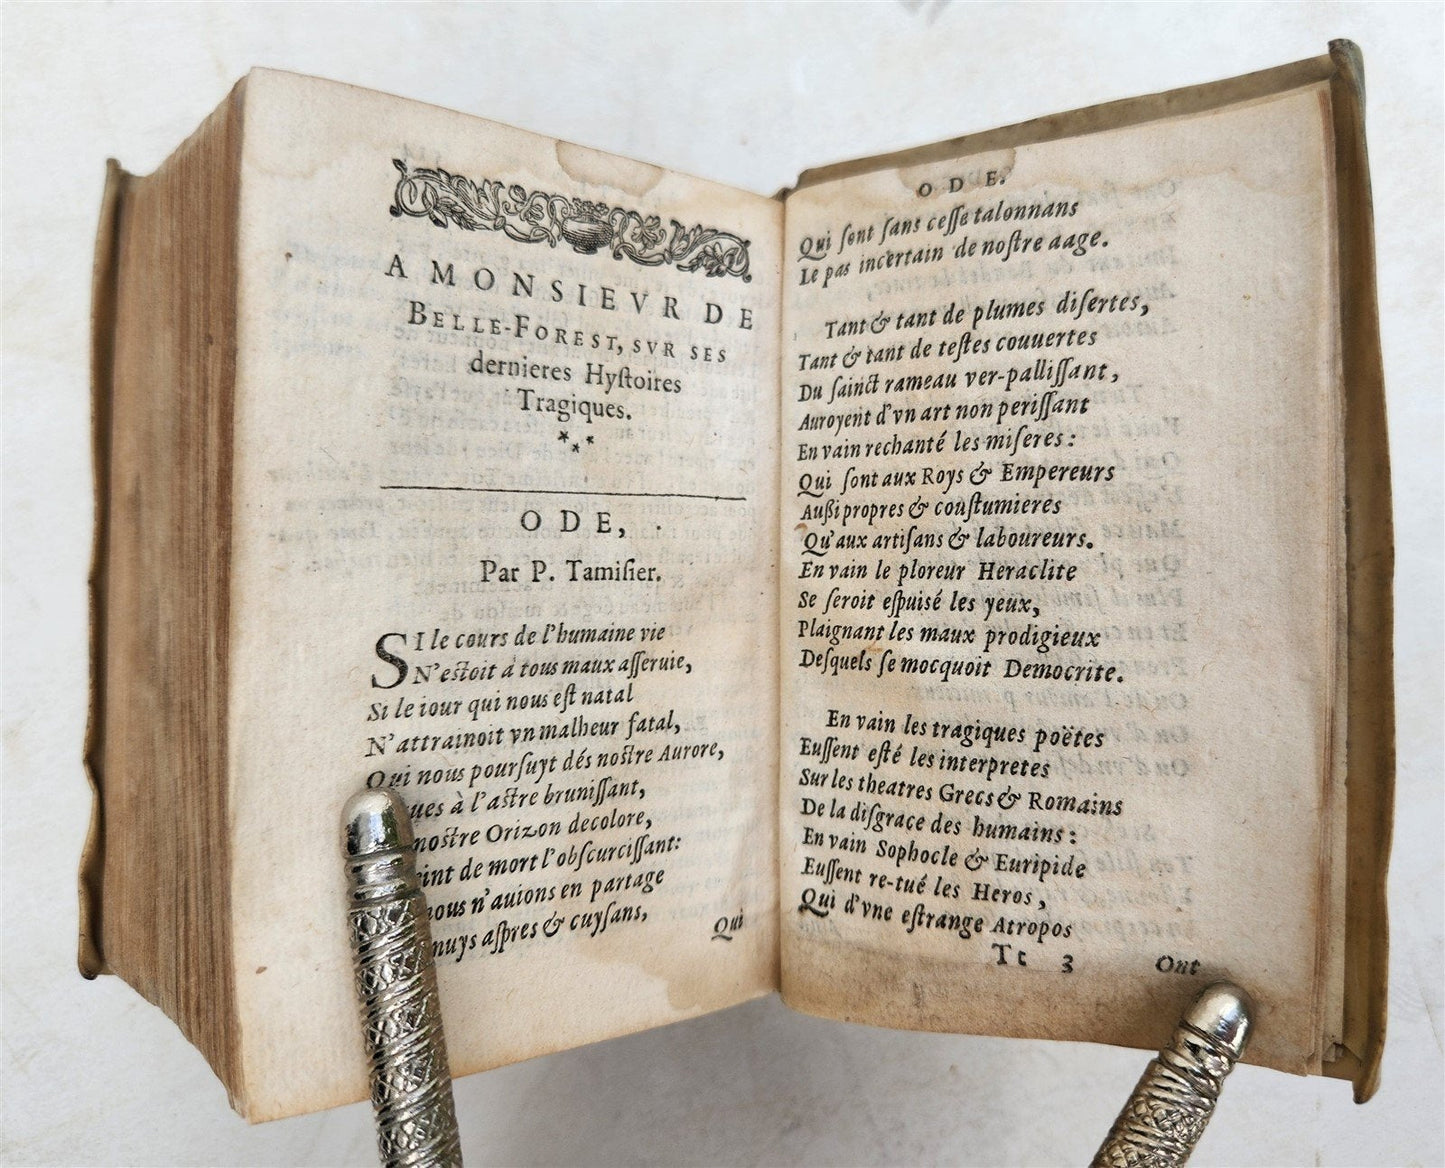 A MONSIEVR DE
BELLE-FOREST, SVR SES
dernieres Hyſtoires
Tragiques.
***
ODE,
Par P. Tamiſier.
SI le cours de l'humaine vie
N'eſtoit à tous maux aſſeruie,
Si le iour qui nous eſt natal
N'attrainoit vn malheur fatal,
Qui nous pourſuyt dés noſtre Aurore,
à l'aſtre bruniſſant,
noſtre Orizon decolore,
de mort l'obſcurciſſant:
nous n'auions en partage
aſpres & cuyſans,
Qui
ODE.
Qui ſont ſans ceſſe talonnans
Le pas incertain de noſtre aage.
Tant & tant de plumes diſertes,
Tant & tant de teſtes couuertes
Du ſainct rameau ver-palliſſant,
Auroyent d'vn art non periſſant
En vain rechanté les miſeres:
Qui ſont aux Roys & Empereurs
Außi propres & couſtumieres
Qu'aux artiſans & laboureurs.
En vain le ploreur Heraclite
Se ſeroit eſpuisé les yeux,
Plaignant les maux prodigieux
Deſquels ſe mocquoit Democrite.
En vain les tragiques poëtes
Euſſent eſté les interpretes
Sur les theatres Grecs & Romains
De la diſgrace des humains:
En vain Sophocle & Euripide
Euſſent re-tué les Heros,
Qui d'vne eſtrange Atropos
Tt 3
Ont